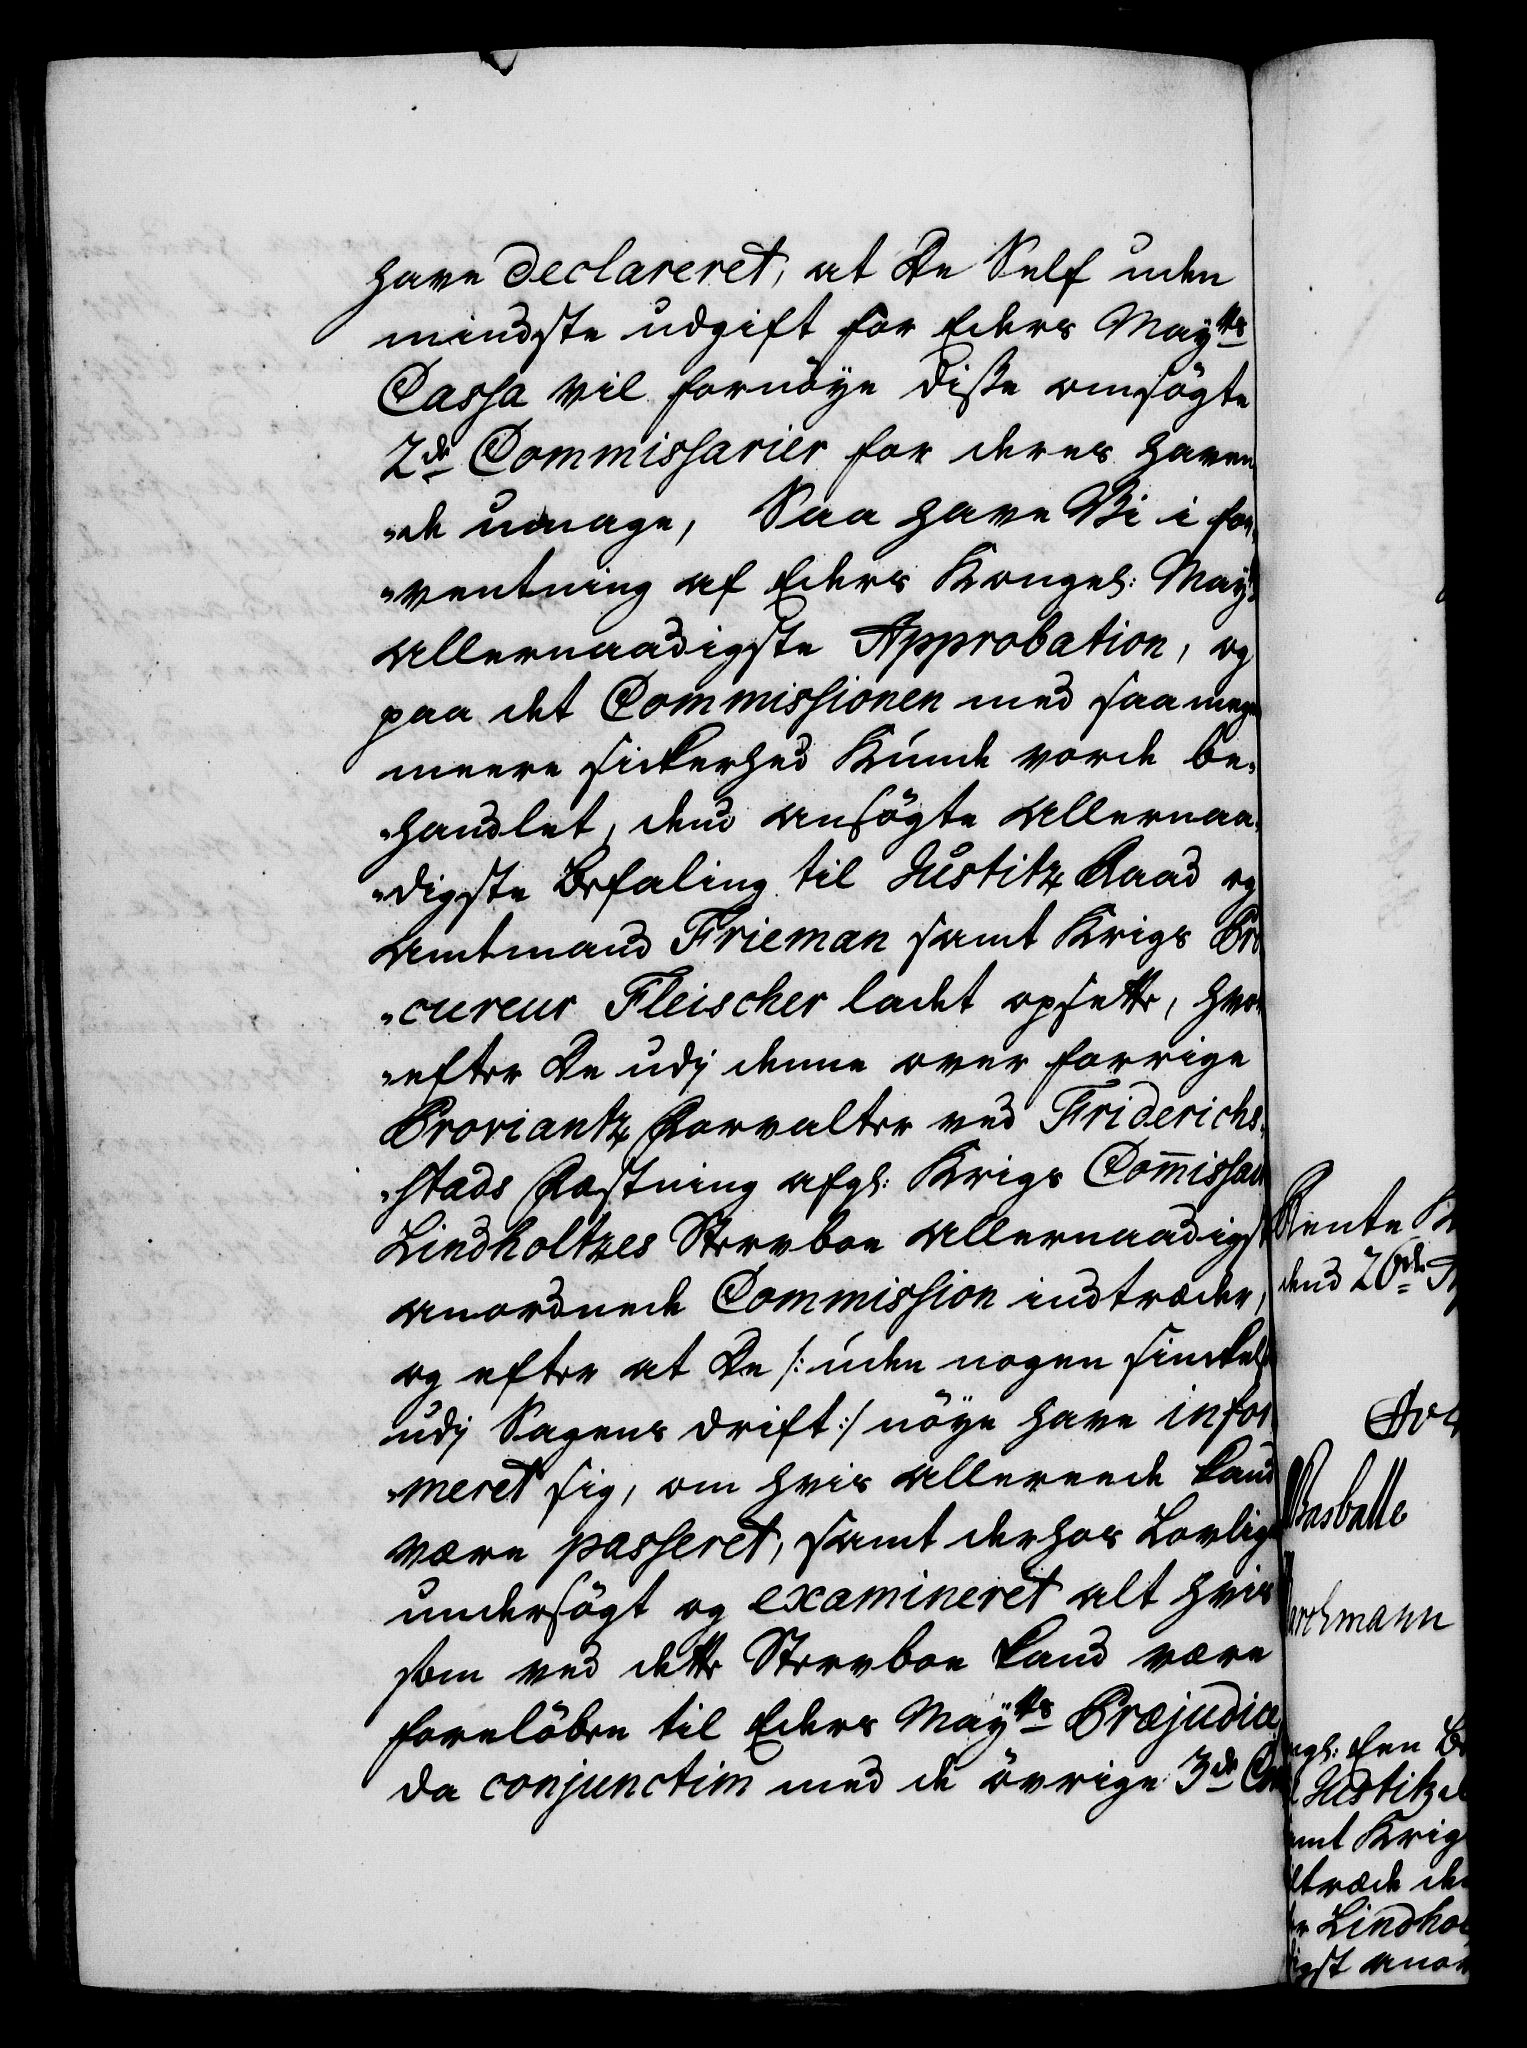 have declareret, at De Self uden
mindste udgift for Eders Mayts
Cassa vil fornöye disse omsögte
2de Commissarier for deres haven
„de umage, Saa have Vi i for„
„ventning af Eders Kongel: Mayts
allernaadigste Approbation, og
paa det Commissionen med saa meget
meere sickerhed Kunde vorde be„
„handlet, dend ansögte allernaa„
„digste Befaling til Justitz Raad og
Amtmand Frieman samt Krigs Pro
„cureur Fleischer ladet opsette, hvor
„efter De udj denne over forrige
Proviantz Forvalter ved Friderichs„
„stads Fæstning afgl: Krigs Commissair
Lindholtzes Sterboe allernaadigst
anordnede Commission indtræder,
og efter at De /: uden nogen sinckelse
udj Sagens drift :/ nöye have infor
„meret sig, om hvis allereede kand
være passeret, samt derhos Lovlig
undersögt og examineret alt hvis
som ved dette Sterboe kand være
forelöben til Eders Mayts Præjudice,
da conjunctim med de övrige 3de Com
Rente K
dend 26de
Basballe
mann
Justitz
amt Krig
ltræde de
Lindho
igst anor